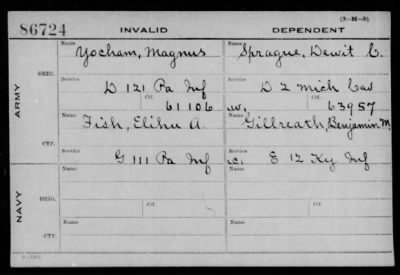 (3-M-5)
86724 INVALID DEPENDENT
Name Name
Yocham, Magnus Sprague, Dewit C.
ORIG.
Service Service
D 121 Pa Inf D 2 Mich Cav
Ctf. Ctf.
61106 w. 63957
ARMY
Name Name
Fish, Elihu A. Gillreath, Benjamin M.
CTF.
Service Service
G 111 Pa Inf c. E 12 Ky Inf
Name Name
NAVY
ORIG.
Ctf. Ctf.
Name Name
CTF.